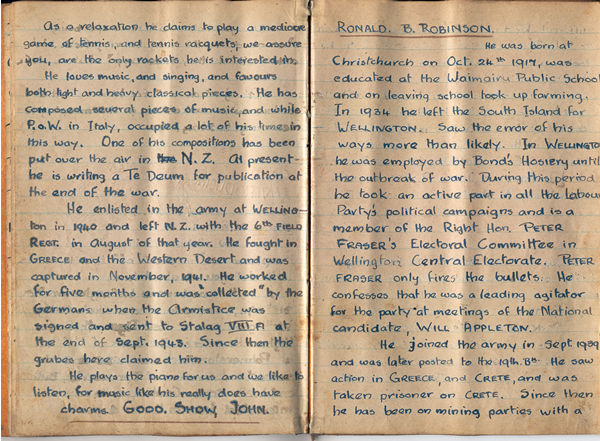 As a relaxation he claims to play a mediocre
game of tennis, and tennis racquets, we assure
you, are the only rackets he is interested in.
He loves music, and singing, and favours
both light and heavy classical pieces. He has
composed several pieces of music, and while
P.O.W. in Italy, occupied a lot of his time in
this way. One of his compositions has been
put over the air in the N.Z. At present
he is writing a Te Deum for publication at
the end of the war.
He enlisted in the army at WELLING-
ton in 1940 and left N.Z. with the 6th FIELD
REGT. in August of that year. He fought in
GREECE and the Western Desert and was
captured in November, 1941. He worked
for five months and was "collected" by the
Germans when the Armistice was
signed and sent to Stalag VIII A at
the end of Sept. 1943. Since then the
grubes here claimed him.
He plays the piano for us and we like to
listen, for music like his really does have
charms. GOOD. SHOW, JOHN.
RONALD. B. ROBINSON.
He was born at
Christchurch on Oct. 24th 1917, was
educated at the Waimairu Public School
and on leaving school took up farming.
In 1934 he left the South Island for
WELLINGTON. Saw the error of his
ways more than likely. In WELLINGTO
he was employed by Bond's Hosiery until
the outbreak of war. During this period
he took an active part in all the Labour
Party's political campaigns and is a
member of the Right Hon. PETER
FRASER'S Electoral Committee in
Wellington Central Electorate. PETER
FRASER only fires the bullets. He
confesses that he was a leading agitator
for the party at meetings of the National
candidate, WILL APPLETON.
He joined the army in Sept 1939
and was later posted to the 19th. Bn. He saw
action in GREECE, and CRETE, and was
taken prisoner on CRETE. Since then
he has been on mining parties with a